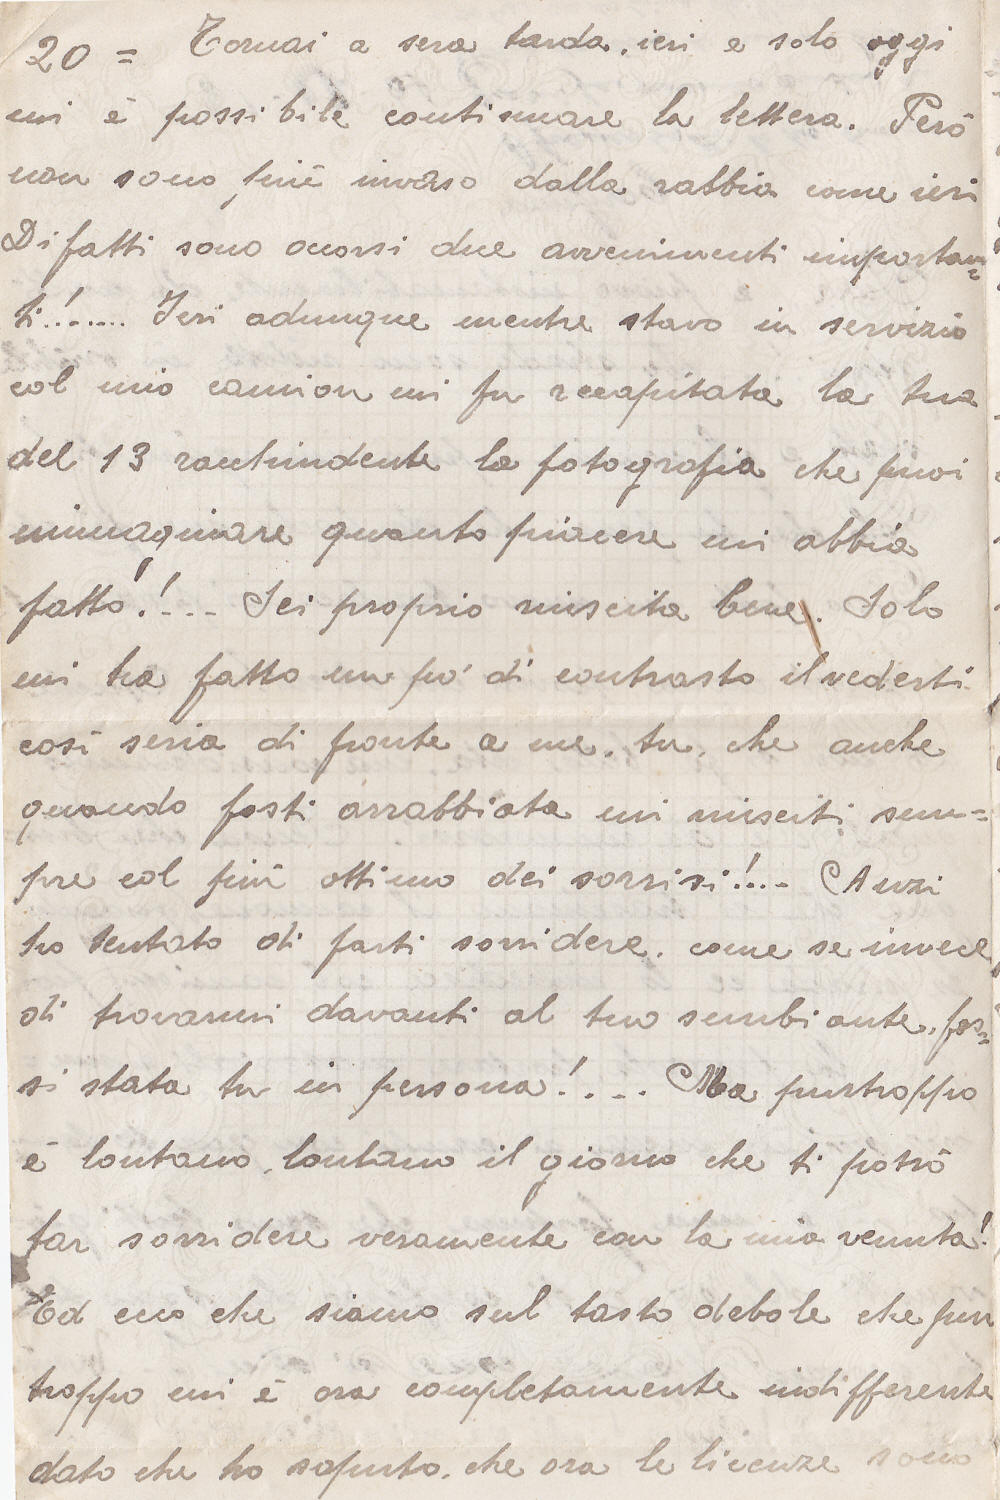 20 = Tornai a sera tarda, ieri e solo oggi
mi è possibile continuare la lettera. Però
non sono più invaso dalla rabbia come ieri
Difatti sono occorsi due avvenimenti importan=
ti!....... Ieri adunque mentre stavo in servizio
col mio camion mi fu recapitata la tua
del 13 racchiudente la fotografia che puoi
immaginare quanto piacere mi abbia
fatto!!... Sei proprio riuscita bene. Solo
mi ha fatto un po' di contrasto il vederti
così seria di fronte a me, tu, che anche
quando fosti arrabbiata mi riusciti sem=
pre col più ottimo dei sorrisi!... Anzi
ho tentato di farti sorridere, come se invece
di trovarmi davanti al tuo sembiante, fos=
si stata tu in persona!.... Ma purtroppo
è lontano, lontano il giorno che ti potrò
far sorridere veramente con la mia venuta!
Ed ecco che siamo sul tasto debole che pur
troppo mi è ora completamente indifferente
dato che ho saputo, che ora le licenze sono